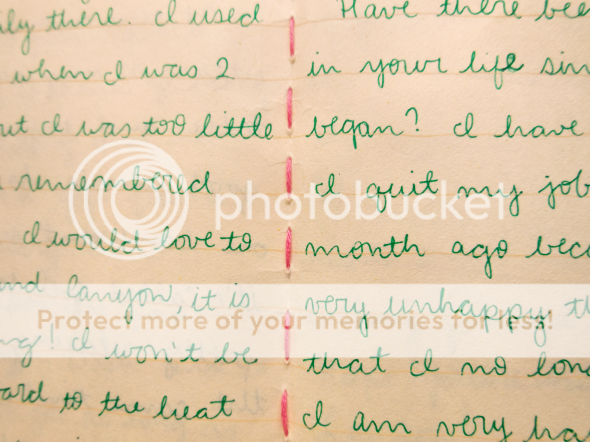 ily there. I used
when I was 2
ut I was too little
remembered
I would love to
nd Canyon, it is
ng! I won't be
ard to the heat
Have there bee
in your life sin
began? I have
I quit my job
month ago beca
very unhappy th
that I no long
I am very ha
photobucket
Protect more of your memories for less!